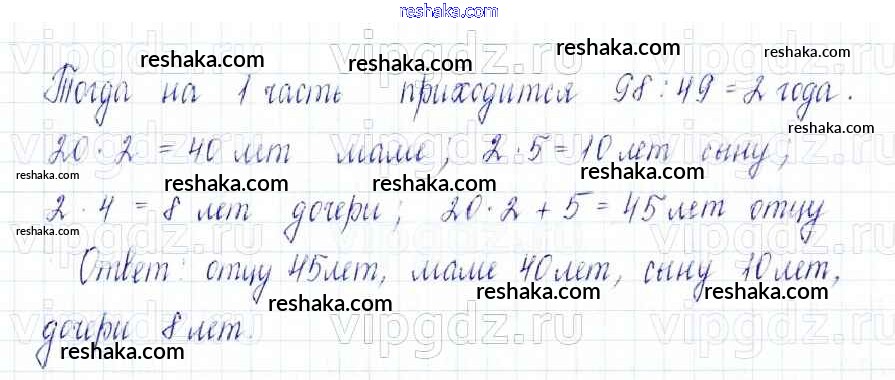 reshaka.com
Тогда на 1 часть приходится 98 : 49 = 2 года.
20 · 2 = 40 лет маме; 2 · 5 = 10 лет сыну;
2 · 4 = 8 лет дочери; 20 · 2 + 5 = 45 лет отцу
Ответ: отцу 45 лет, маме 40 лет, сыну 10 лет,
дочери 8 лет.
vipgdz.ru vipgdz.ru vipgdz.ru
reshaka.com reshaka.com reshaka.com reshaka.com
reshaka.com
reshaka.com reshaka.com reshaka.com reshaka.com
reshaka.com
reshaka.com reshaka.com reshaka.com
reshaka.com